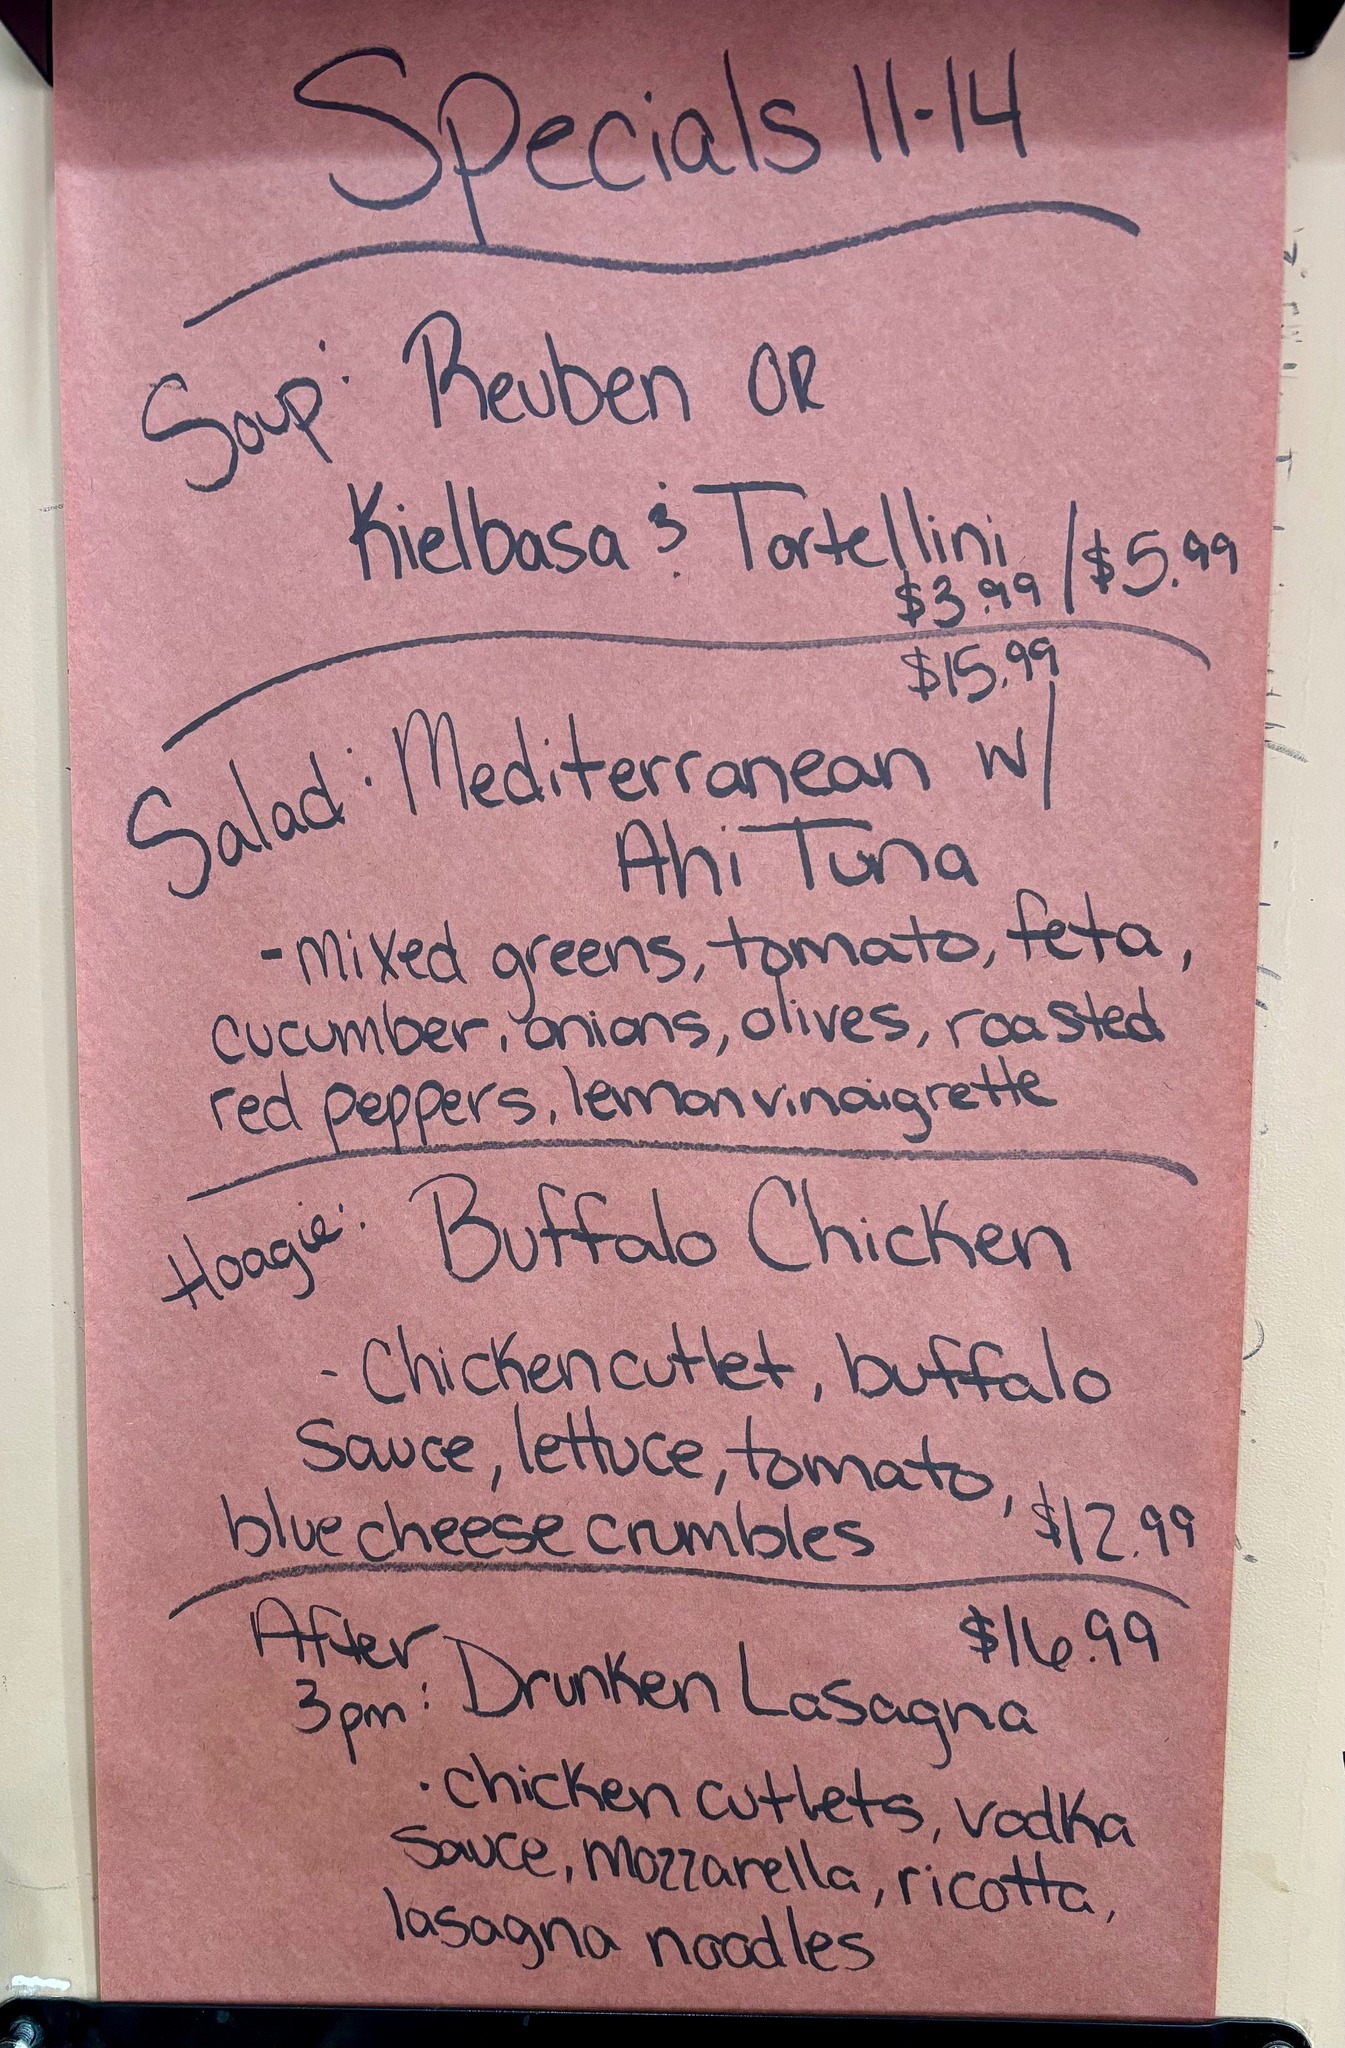 Specials 11-14
Soup: Reuben OR
Kielbasa & Tortellini
$3.99 / $5.99
$15.99
Salad: Mediterranean w/
Ahi Tuna
- mixed greens, tomato, feta,
cucumber, onions, olives, roasted
red peppers, lemon vinaigrette
Hoagie: Buffalo Chicken
- Chicken cutlet, buffalo
sauce, lettuce, tomato,
blue cheese crumbles $12.99
$16.99
After
3pm: Drunken Lasagna
· chicken cutlets, vodka
sauce, mozzarella, ricotta,
lasagna noodles